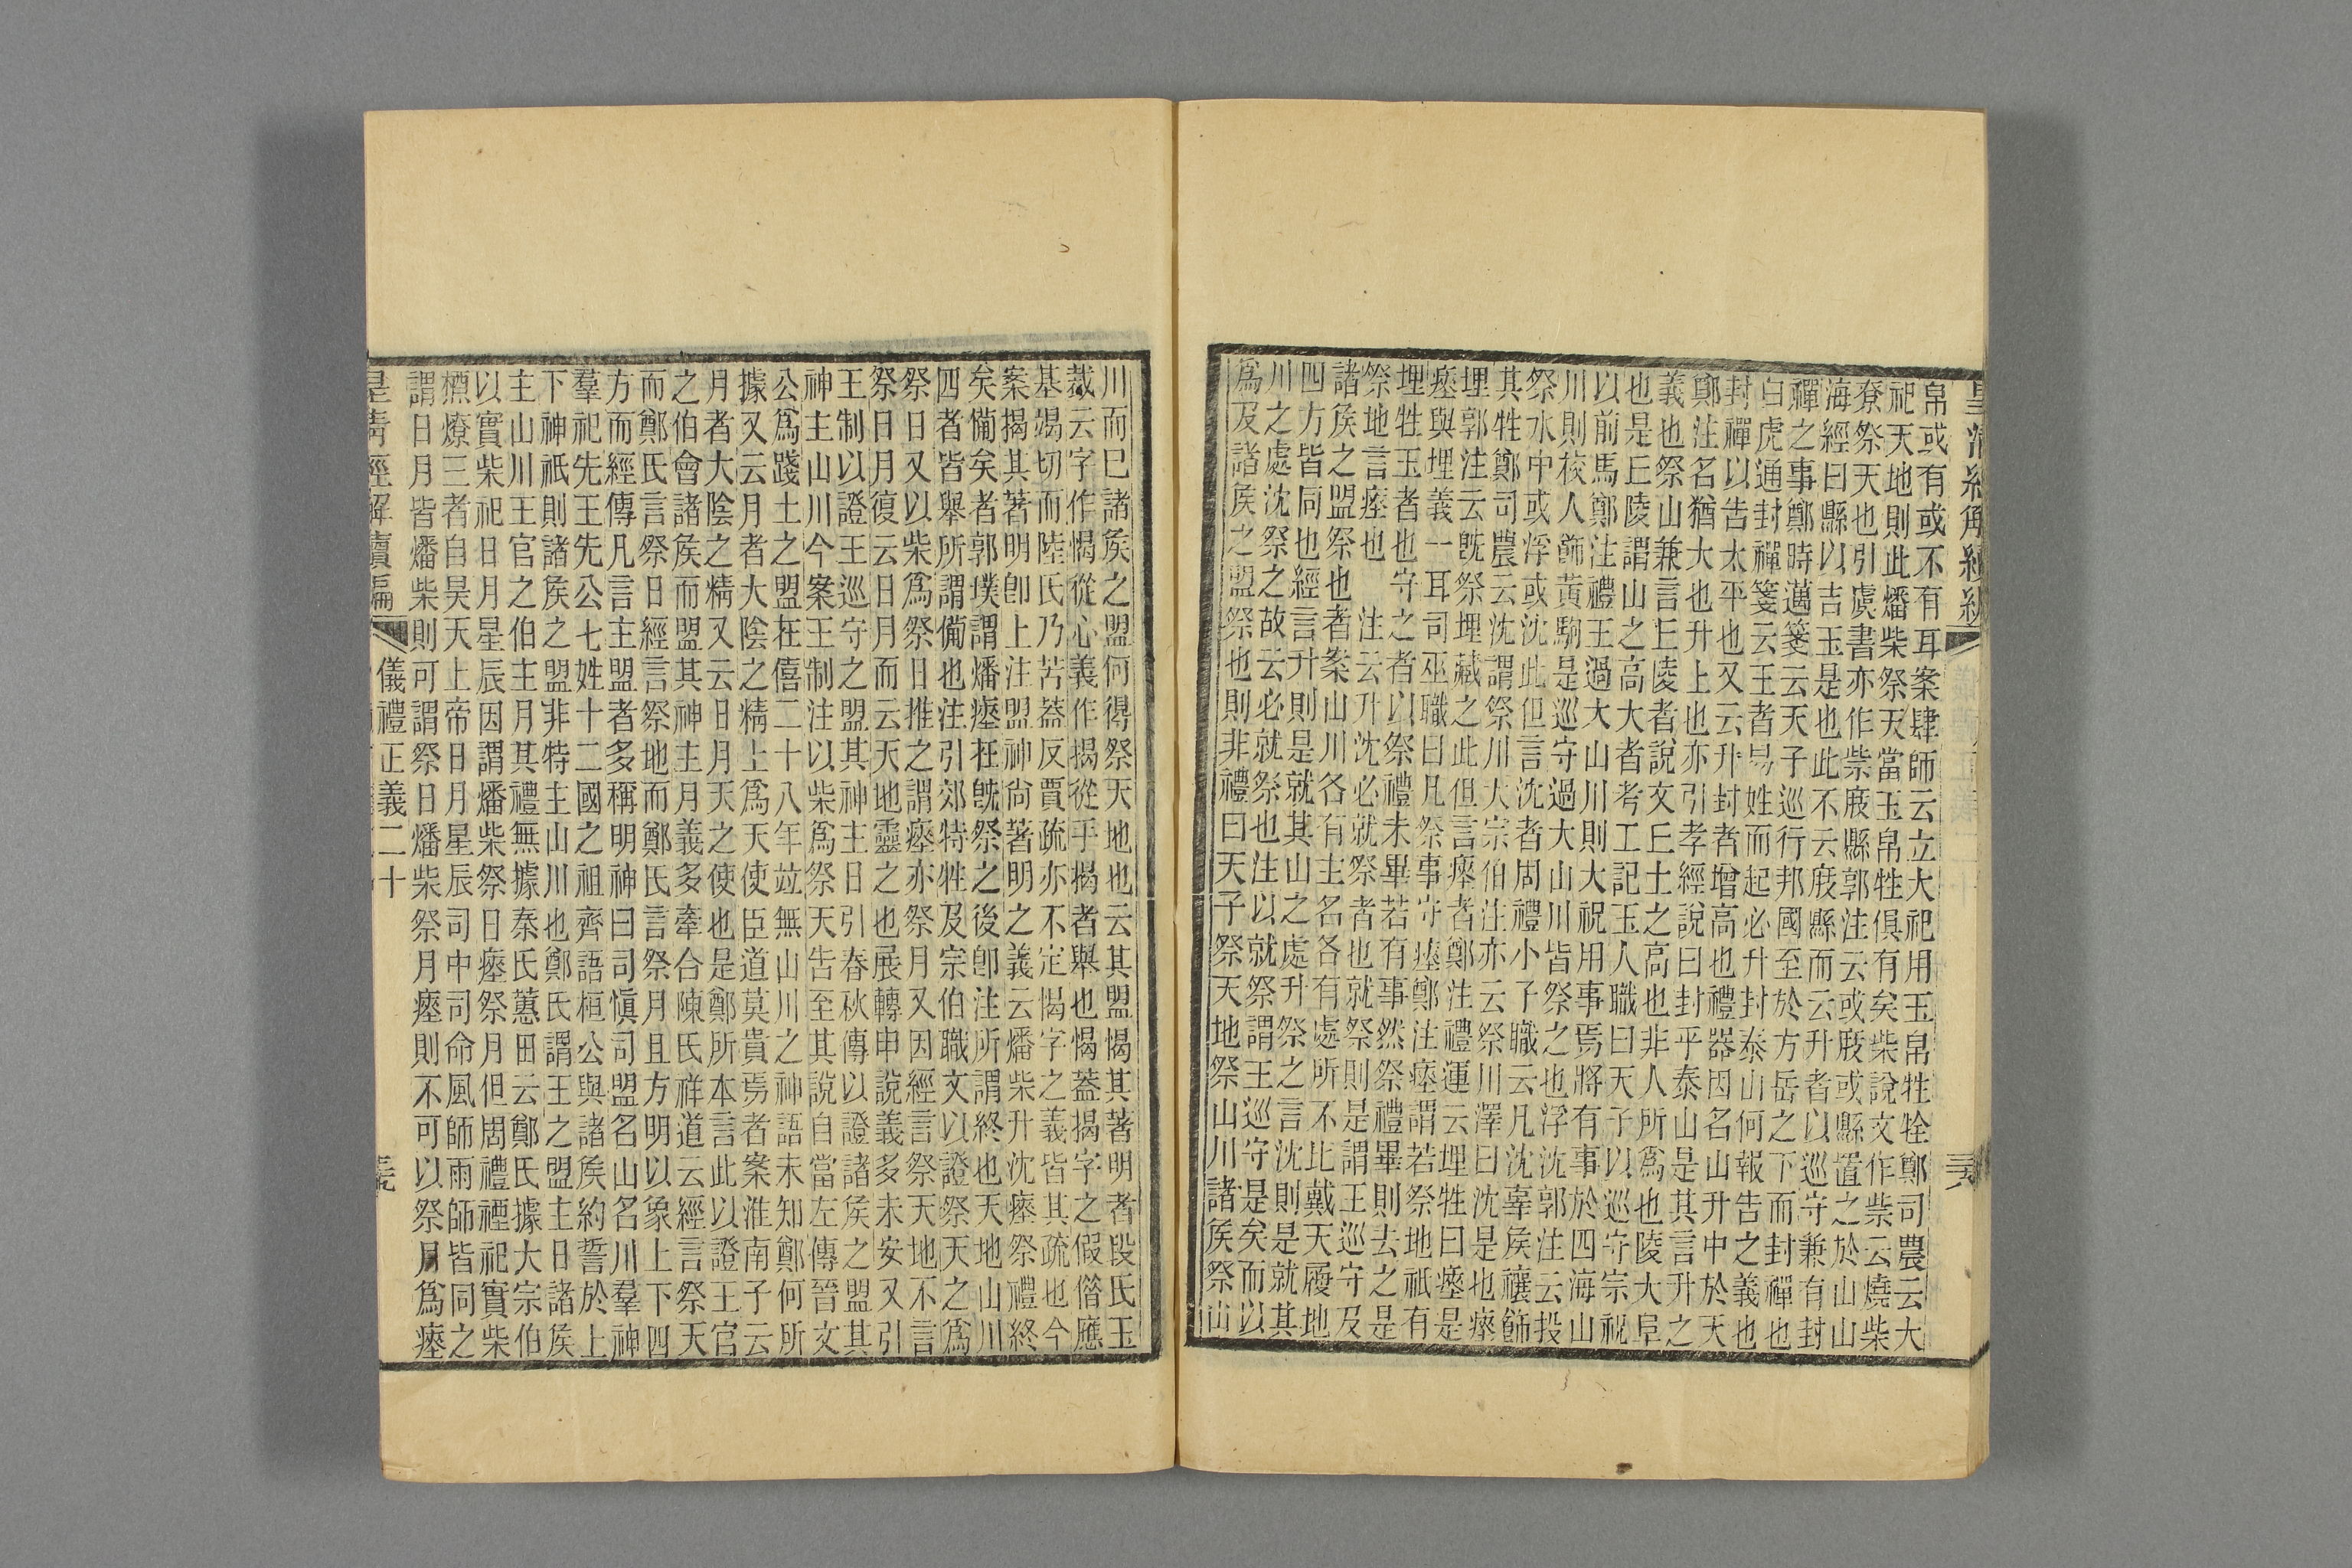 帛或有或不有耳案肆師云立大祀用玉帛牲牷鄭司農云大
祀天地則此燔柴祭天當玉帛牲俱有矣柴說文作祡云燒柴
尞祭天也引虞書亦作祡庪縣郭注云或庪或縣置之於山山
海經曰縣以吉玉是也此不云庪縣而云升者以巡守兼有封
禪之事鄭時邁箋云天子巡行邦國至於方岳之下而封禪也
白虎通封禪箋云王者易姓而起必升封泰山何報告之義也
封禪以告太平也又云升封者增高也禮器因名山升中於天
鄭注名猶大也升上也亦引孝經說曰封乎泰山是其言升之
義也祭山兼言丘陵者說文丘土之高也非人所爲也陵大阜
也是丘陵謂山之高大者考工記玉人職曰天子以巡守宗祝
以前馬鄭注禮王過大山川則大祝用事焉將有事於四海山
川則校人飾黃駒是巡守過大山川皆祭之也浮沈郭注云投
祭水中或浮或沈此但言沈者周禮小子職云凡沈辜侯禳飾
其牲鄭司農云沈謂祭川大宗伯注亦云祭川澤曰沈是也瘞
埋郭注云旣祭埋藏之此但言瘞者鄭注禮運云埋牲曰瘞是
瘞與埋義一耳司巫職曰凡祭事守瘞鄭注瘞謂若祭地祇有
埋牲玉者也守之者以祭禮未畢若有事然祭禮畢則去之是
祭地言瘞也　注云升沈必就祭者也就祭則是謂王巡守及
諸侯之盟祭也者案山川各有主名各有處所不比戴天履地
四方皆同也經言升則是就其山之處升祭之言沈則是就其
川之處沈祭之故云必就祭也注以就祭謂王巡守是矣而以
爲及諸侯之盟祭也則非禮曰天子祭天地祭山川諸侯祭山
川而已諸侯之盟何得祭天地也云其盟愒其著明者段氏玉
裁云字作愒從心義作揭從手揭者舉也愒蓋揭字之假借應
基竭切而陸氏乃苦蓋反賈疏亦不定愒字之義皆其疏也今
案揭其著明卽上注盟神尙著明之義云燔柴升沈瘞祭禮終
矣備矣者郭璞謂燔瘞在旣祭之後卽注所謂終也天地山川
四者皆舉所謂備也注引郊特牲及宗伯職文以證祭天之爲
祭日又以柴爲祭日推之謂瘞亦祭月又因經言祭天地不言
祭日月復云日月而云天地靈之也展轉申說義多未安又引
王制以證王巡守之盟其神主日引春秋傳以證諸侯之盟其
神主山川今案王制注以柴爲祭天告至其說自當左傳晉文
公爲踐土之盟在僖二十八年竝無山川之神語未知鄭何所
據又云月者大陰之精上爲天使臣道莫貴焉者案淮南子云
月者大陰之精又云日月天之使也是鄭所本言此以證王官
之伯會諸侯而盟其神主月義多牽合陳氏祥道云經言祭天
而鄭氏言祭日經言祭地而鄭氏言祭月且方明以象上下四
方而經傳凡言主盟者多稱明神曰司愼司盟名山名川羣神
羣祀先王先公七姓十二國之祖齊語桓公與諸侯約誓於上
下神祇則諸侯之盟非特主山川也鄭氏謂王之盟主日諸侯
主山川王官之伯主月其禮無據秦氏蕙田云鄭氏據大宗伯
以實柴祀日月星辰因謂燔柴祭日瘞祭月但周禮禋祀實柴
槱燎三者自昊天上帝日月星辰司中司命風師雨師皆同之
謂日月皆燔柴則可謂祭日燔柴祭月瘞則不可以祭月爲瘞
儀禮正義二十